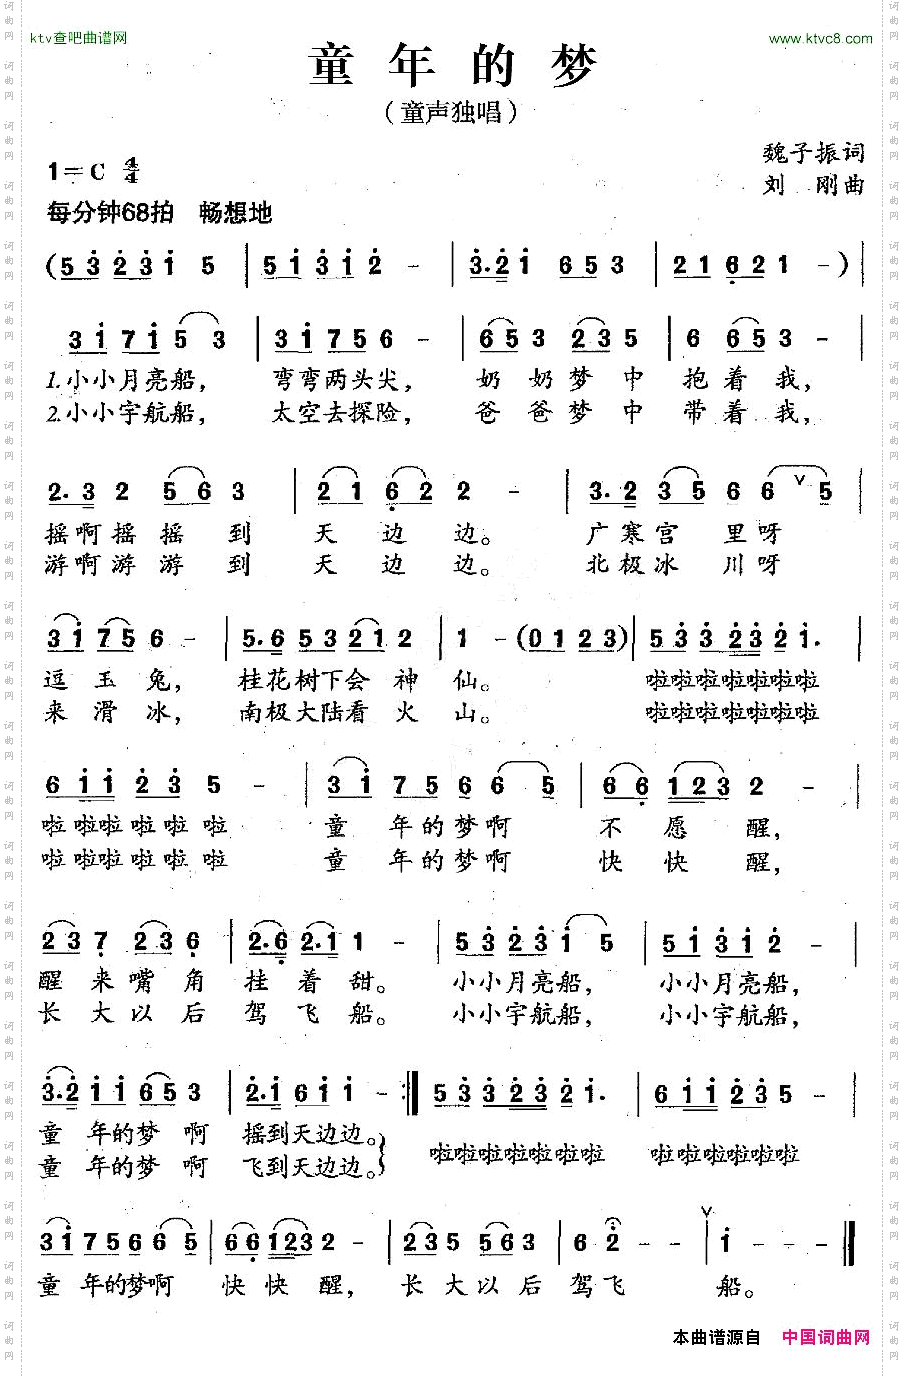 ktv查吧曲谱网
www.ktvc8.com
童年的梦
（童声独唱）
1=C 4/4
魏子振词
刘 刚曲
每分钟68拍 畅想地
(5 3 2 3 1 5 | 5 1 3 1 2 - | 3. 2 1 6 5 3 | 2 1 6 2 1 -) |
3 1 7 1 5 3 | 3 1 7 5 6 - | 6 5 3 2 3 5 | 6 6 5 3 - |
1.小小月亮船， 弯弯两头尖， 奶 奶 梦 中 抱 着 我，
2.小小宇航船， 太空去探险， 爸 爸 梦 中 带 着 我，
2. 3 2 5 6 3 | 2 1 6 2 2 - | 3. 2 3 5 6 6 ∨ 5 |
摇啊摇 摇 到 天 边 边。 广寒宫 里呀
游啊游 游 到 天 边 边。 北极冰 川呀
3 1 7 5 6 - | 5. 6 5 3 2 1 2 | 1 - (0 1 2 3) | 5 3 3 2 3 2 1. |
逗 玉 兔， 桂花树下会 神 仙。 啦啦啦啦啦啦啦
来 滑 冰， 南极大陆看 火 山。 啦啦啦啦啦啦啦
6 1 1 2 3 5 - | 3 1 7 5 6 6 5 | 6 6 1 2 3 2 - |
啦 啦啦 啦 啦 啦 童 年的梦啊 不 愿 醒，
啦 啦啦 啦 啦 啦 童 年的梦啊 快 快 醒，
2 3 7 2 3 6 | 2. 6 2. 1 1 - | 5 3 2 3 1 5 | 5 1 3 1 2 - |
醒 来 嘴 角 挂 着 甜。 小小月亮船， 小小月亮船，
长 大 以 后 驾 飞 船。 小小宇航船， 小小宇航船，
3. 2 1 1 6 5 3 | 2. 1 6 1 1 - :| 5 3 3 2 3 2 1. | 6 1 1 2 3 5 - |
童 年的梦 啊 摇到天边边。
童 年的梦 啊 飞到天边边。
啦啦啦啦啦啦啦 啦啦啦啦啦啦
3 1 7 5 6 6 5 | 6 6 1 2 3 2 - | 2 3 5 5 6 3 | 6 2 - - ∨ | 1 - - - ||
童 年的梦啊 快 快 醒， 长 大 以 后 驾 飞 船。
本曲谱源自 中国词曲网